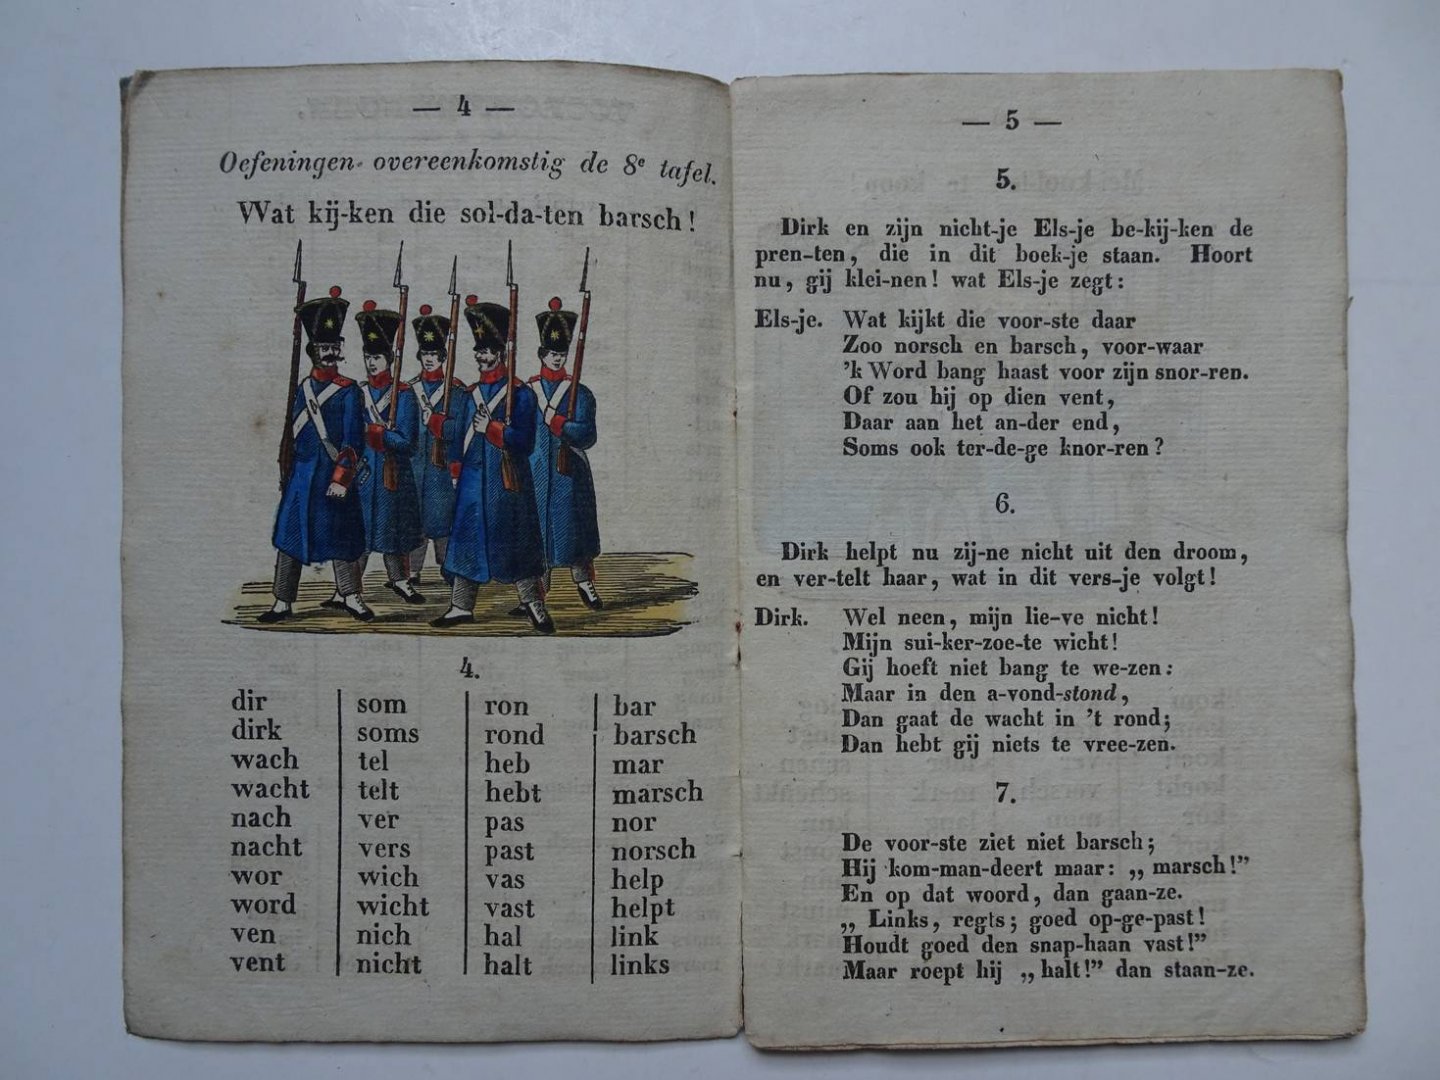 — 4 —
Oefeningen overeenkomstig de 8e tafel.
Wat kij-ken die sol-da-ten barsch!
4.
dir | som | ron | bar
dirk | soms | rond | barsch
wach | tel | heb | mar
wacht | telt | hebt | marsch
nach | ver | pas | nor
nacht | vers | past | norsch
wor | wich | vas | help
word | wicht | vast | helpt
ven | nich | hal | link
vent | nicht | halt | links
— 5 —
5.
Dirk en zijn nicht-je Els-je be-kij-ken de
pren-ten, die in dit boek-je staan. Hoort
nu, gij klei-nen! wat Els-je zegt:
Els-je. Wat kijkt die voor-ste daar
Zoo norsch en barsch, voor-waar
'k Word bang haast voor zijn snor-ren.
Of zou hij op dien vent,
Daar aan het an-der end,
Soms ook ter-de-ge knor-ren?
6.
Dirk helpt nu zij-ne nicht uit den droom,
en ver-telt haar, wat in dit vers-je volgt!
Dirk. Wel neen, mijn lie-ve nicht!
Mijn sui-ker-zoe-te wicht!
Gij hoeft niet bang te we-zen:
Maar in den a-vond-stond,
Dan gaat de wacht in 't rond;
Dan hebt gij niets te vree-zen.
7.
De voor-ste ziet niet barsch;
Hij kom-man-deert maar: „ marsch!”
En op dat woord, dan gaan-ze.
„ Links, regts; goed op-ge-past!
Houdt goed den snap-haan vast!”
Maar roept hij „halt!” dan staan-ze.